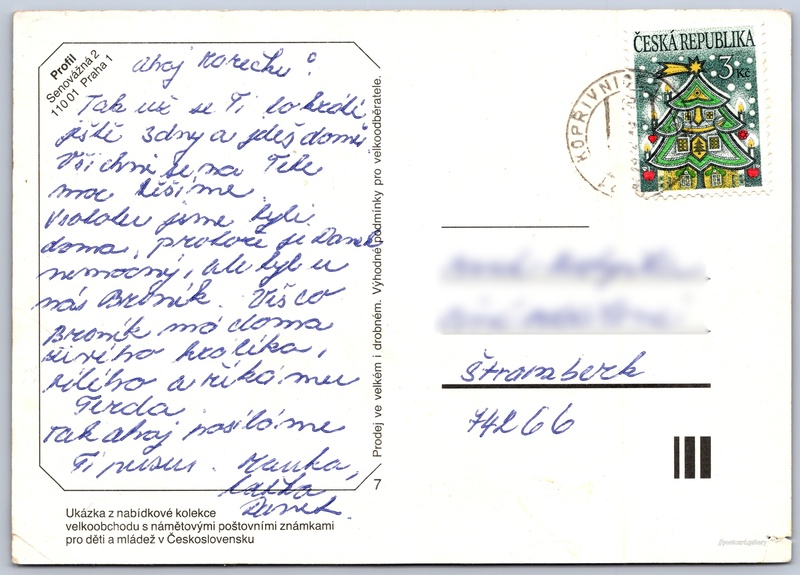 Profil
Senovážná 2
110 01 Praha 1
Ahoj Marečku!
Tak už se Ti to krátí
ještě 3 dny a jdeš domů
Všichni se na Tebe
moc těšíme.
V sobotu jsme byli
doma, protože je Danek
nemocný, ale byl u
nás Broník. Víš co
Broník má doma
živého králíka,
bílého a říká mu
Ferda
Tak ahoj posíláme
Ti pusu. Mamka,
taťka
Danek.
Prodej ve velkém i drobném. Výhodné podmínky pro velkoodběratele.
7
Ukázka z nabídkové kolekce
velkoobchodu s námětovými poštovními známkami
pro děti a mládež v Československu
ČESKÁ REPUBLIKA
3 Kč
KOPŘIVNICE
Štramberk
74266